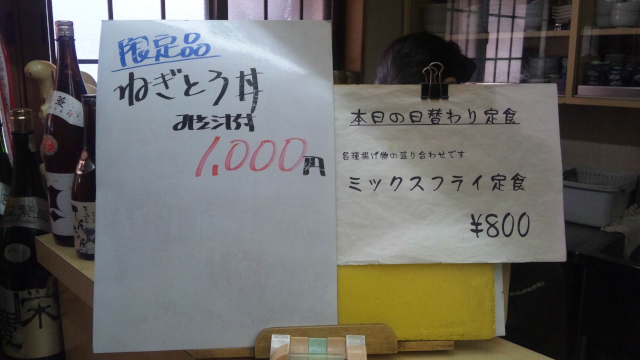 限定品
ねぎとろ丼
お吸汁付
1,000円
本日の日替わり定食
各種揚げ物の盛り合わせです
ミックスフライ定食
¥800